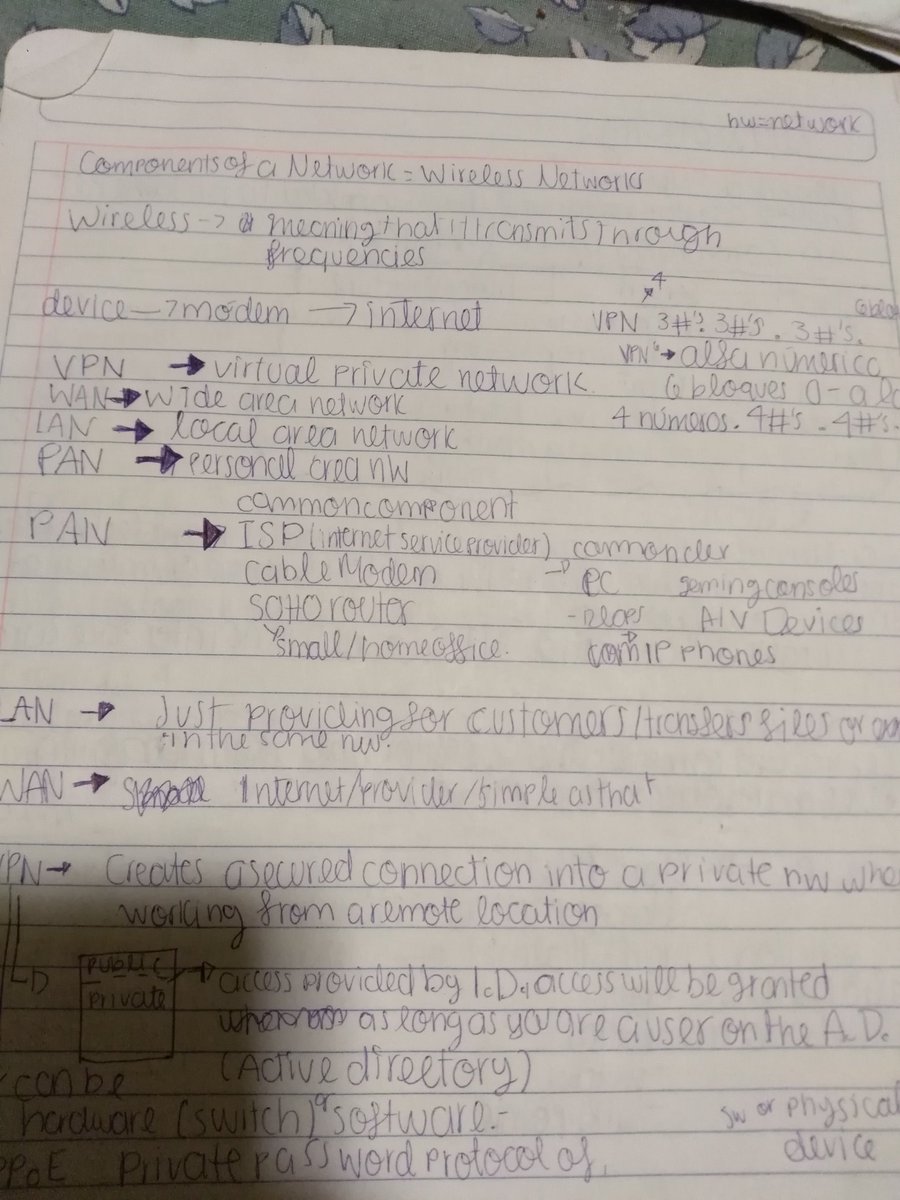 nw=network
Components of a Network = Wireless Networks
Wireless -> meaning that it transmits through
frequencies
device -> modem -> internet
4
VPN 3#'s. 3#'s. 3#'s.
VPN 6 → alfa númerica
VPN → virtual private network.
6 bloques 0-a
WAN → Wide area network
4 números. 4#'s. 4#'s.
LAN → local area network
PAN → personal area nw
common component
PAN → ISP (internet service provider)
Cable Modem → PC gaming consoles
SOHO router A/V Devices
small/home office. IP phones
LAN → Just providing for customers/transfers files or
in the same nw.
WAN → Internet/provider/simple as that
VPN → Creates a secured connection into a private nw
working from a remote location
PUBLIC → access provided by I.D., access will be granted
private
as long as you are a user on the A.D.
(Active directory)
can be
hardware (switch) or software.-
sw or physical
device
PPoE Private password protocol of,